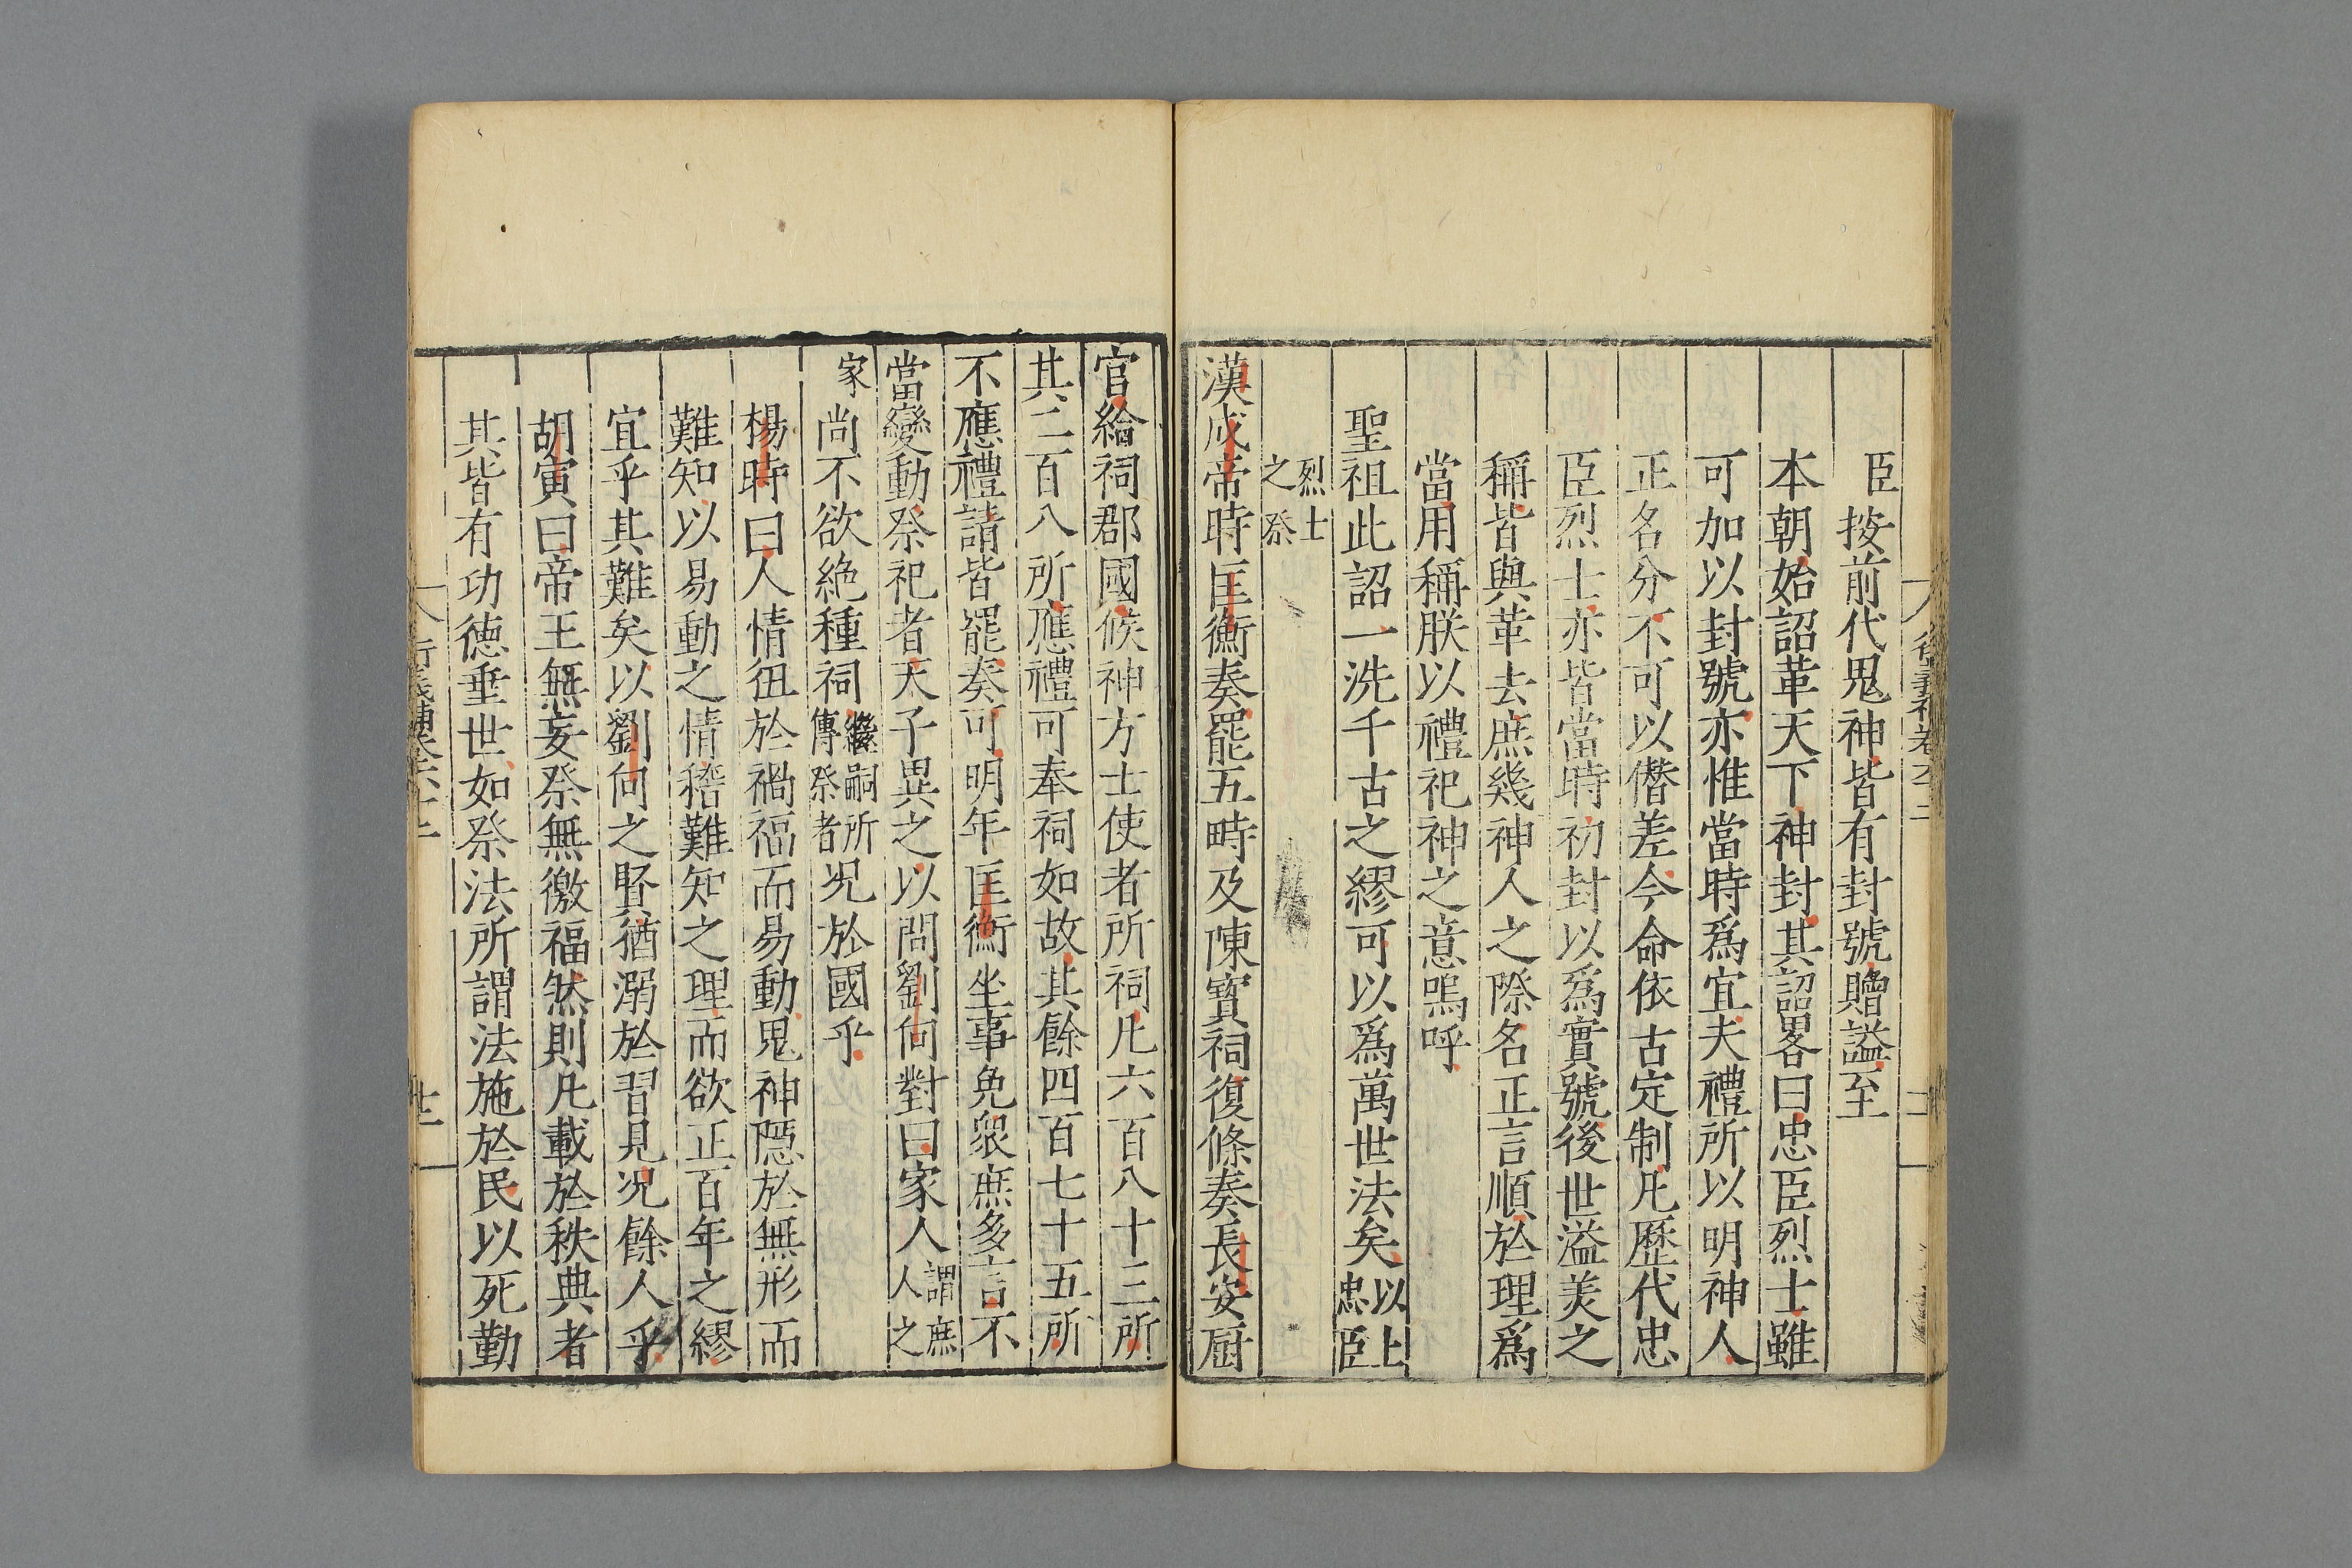 臣按前代鬼神皆有封號贈謚至
本朝始詔革天下神封其詔畧曰忠臣烈士雖
可加以封號亦惟當時爲宜夫禮所以明神人
正名分不可以僭差今命依古定制凡歷代忠
臣烈士亦皆當時初封以爲實號後世溢美之
稱皆與革去庶幾神人之際名正言順於理爲
當用稱朕以禮祀神之意嗚呼
聖祖此詔一洗千古之繆可以爲萬世法矣以上忠臣
烈士之祭
漢成帝時匡衡奏罷五畤及陳寳祠復條奏長安厨
官給祠郡國候神方士使者所祠凡六百八十三所
其二百八所應禮可奉祠如故其餘四百七十五所
不應禮請皆罷奏可明年匡衡坐事免衆庶多言不
當變動祭祀者天子異之以問劉向對曰家人謂庶人之
家尚不欲絶種祠繼嗣所傳祭者况於國乎
楊時曰人情狃於禍福而易動鬼神隱於無形而
難知以易動之情稽難知之理而欲正百年之繆
宜乎其難矣以劉向之賢猶溺於習見况餘人乎
胡寅曰帝王無妄祭無徼福然則凡載於秩典者
其皆有功德垂世如祭法所謂法施於民以死勤